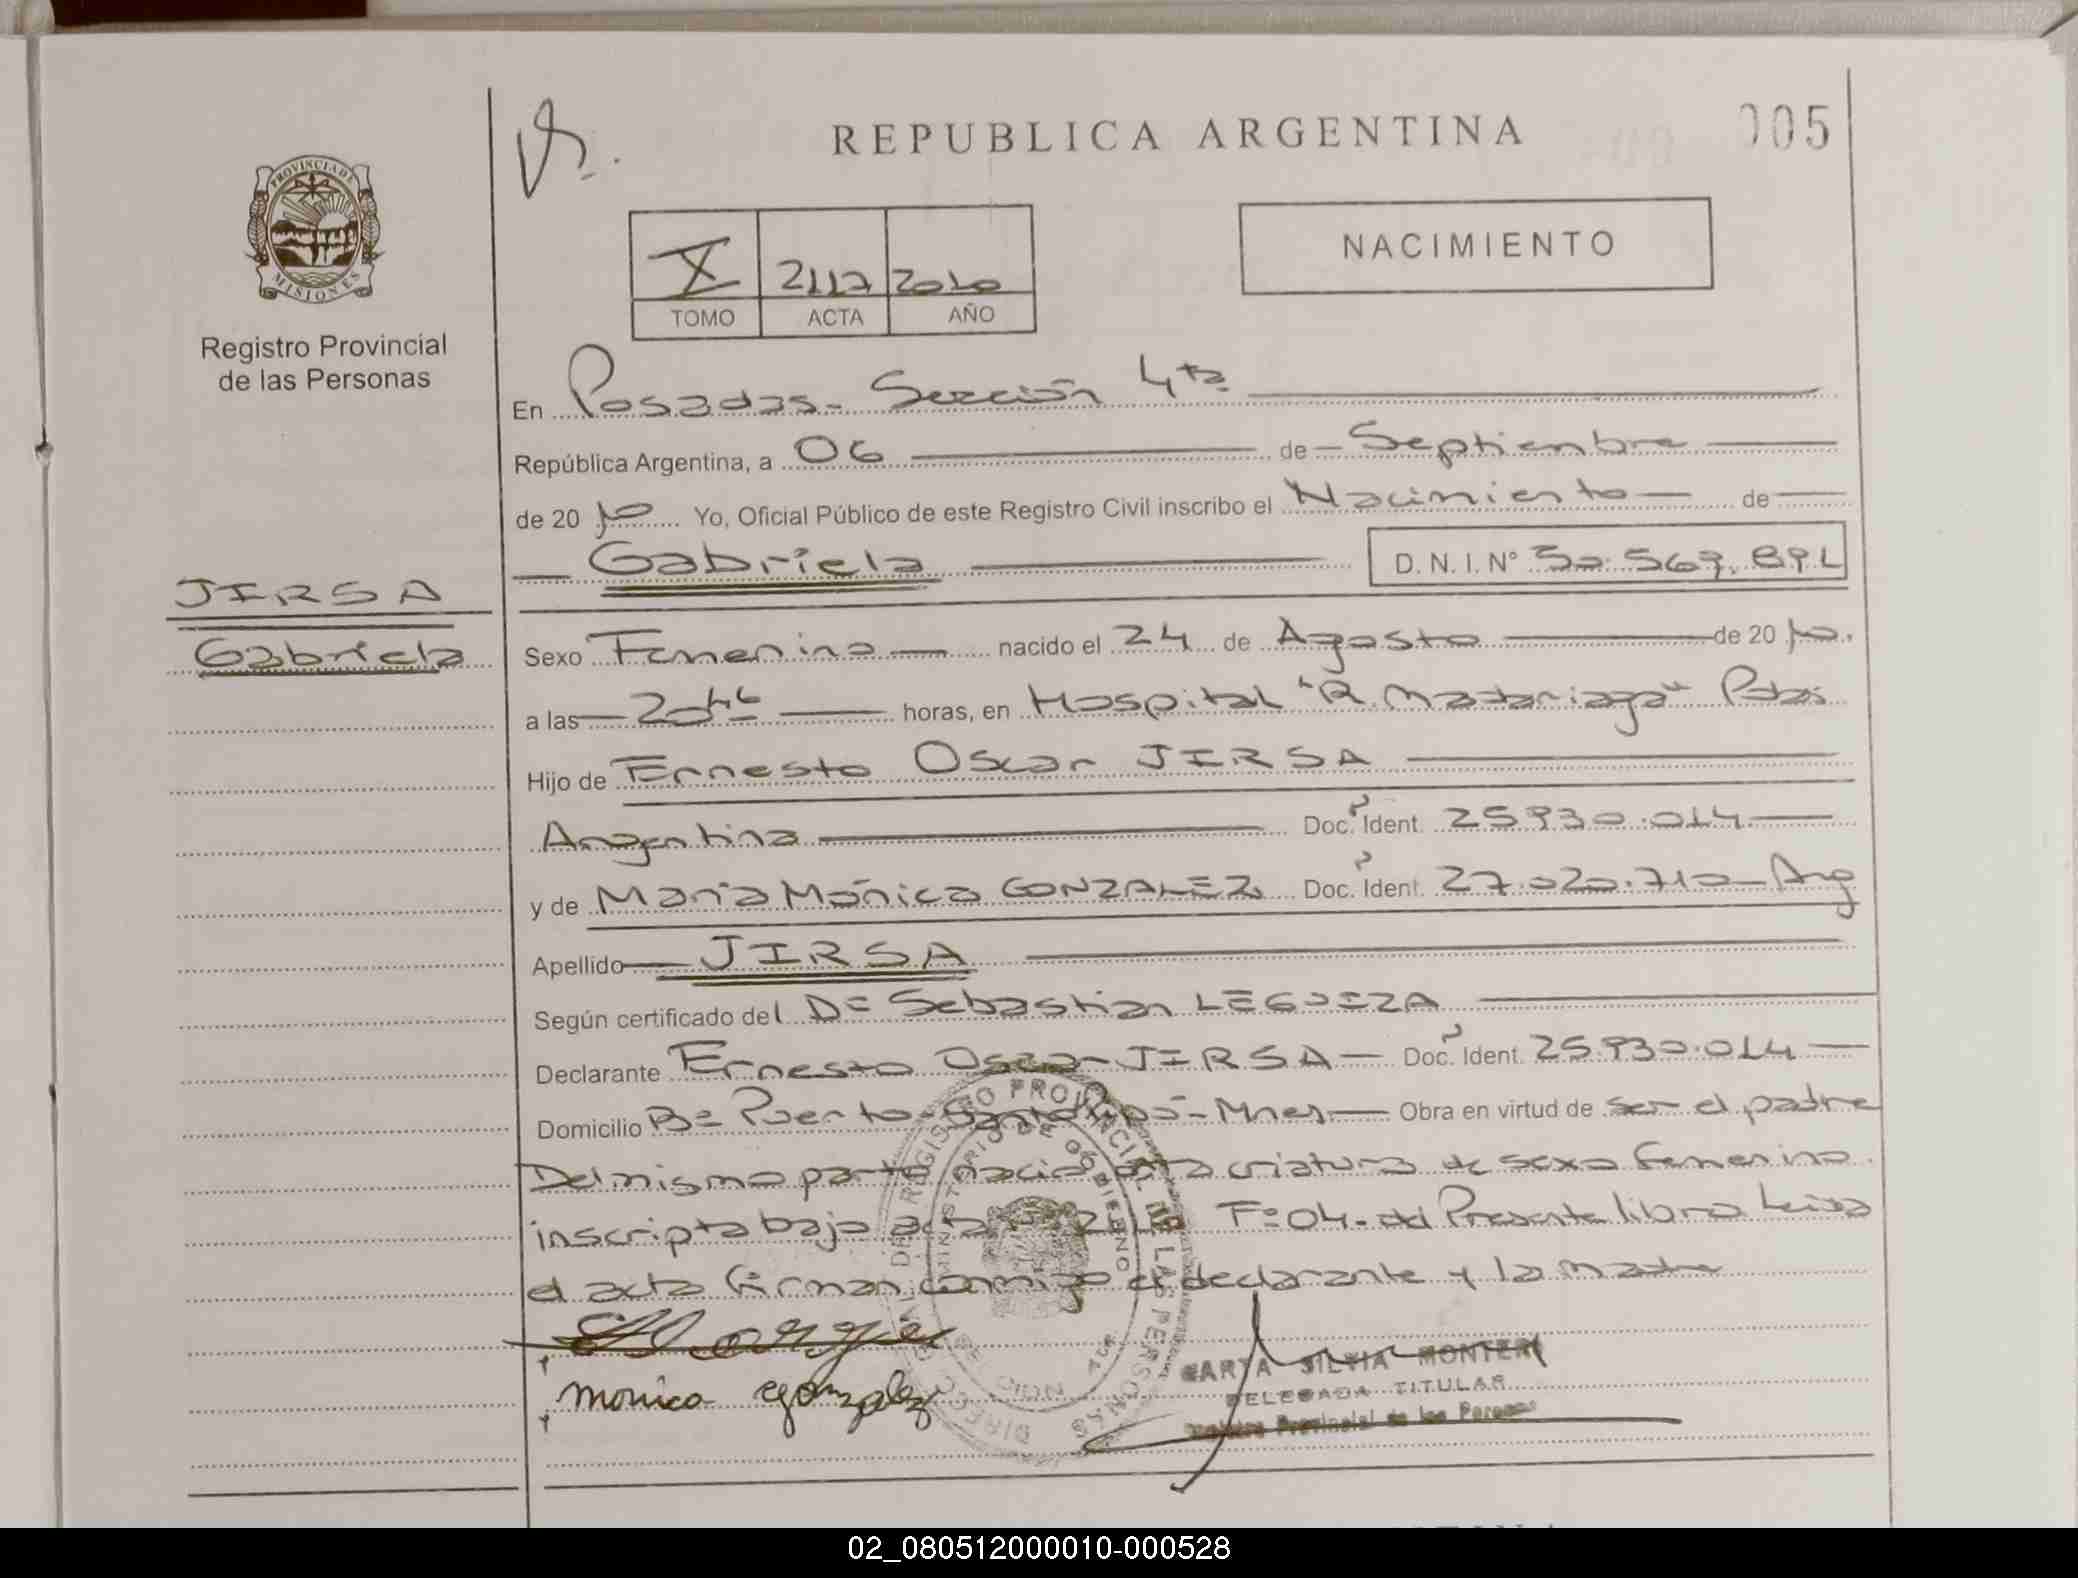 REPUBLICA ARGENTINA
005
PROVINCIA DE
MISIONES
Registro Provincial
de las Personas
X 2117 2010
TOMO ACTA AÑO
NACIMIENTO
En Posadas - Sección 4ta
República Argentina, a 06 de Septiembre
de 2010 Yo, Oficial Público de este Registro Civil inscribo el Nacimiento de
Gabriela D.N.I. Nº 50.567.891
JIRSA
Gabriela
Sexo Femenino nacido el 24 de Agosto de 2010.
a las 20hs horas, en Hospital "R. Madariaga" Pdas
Hijo de Ernesto Oscar JIRSA
Argentina Doc. Ident. 25.930.014
y de María Mónica GONZALEZ Doc. Ident. 27.020.710 - Arg
Apellido JIRSA
Según certificado del Dr Sebastian LEGUIZA
Declarante Ernesto Oscar JIRSA Doc. Ident. 25.930.014
Domicilio Bº Puerto - Santa Mnes Obra en virtud de ser el padre
Del mismo parto nació otra criatura de sexo femenino.
inscripta bajo acta Fº 04 - del Presente libro Leida
el acta firman conmigo el declarante y la madre
monica gonzalez
SILVIA MONTERO
DELEGADA TITULAR
Registro Provincial de las Personas
DIRECCION DEL REGISTRO PROVINCIAL DE LAS PERSONAS
MINISTERIO DE GOBIERNO
02_080512000010-000528